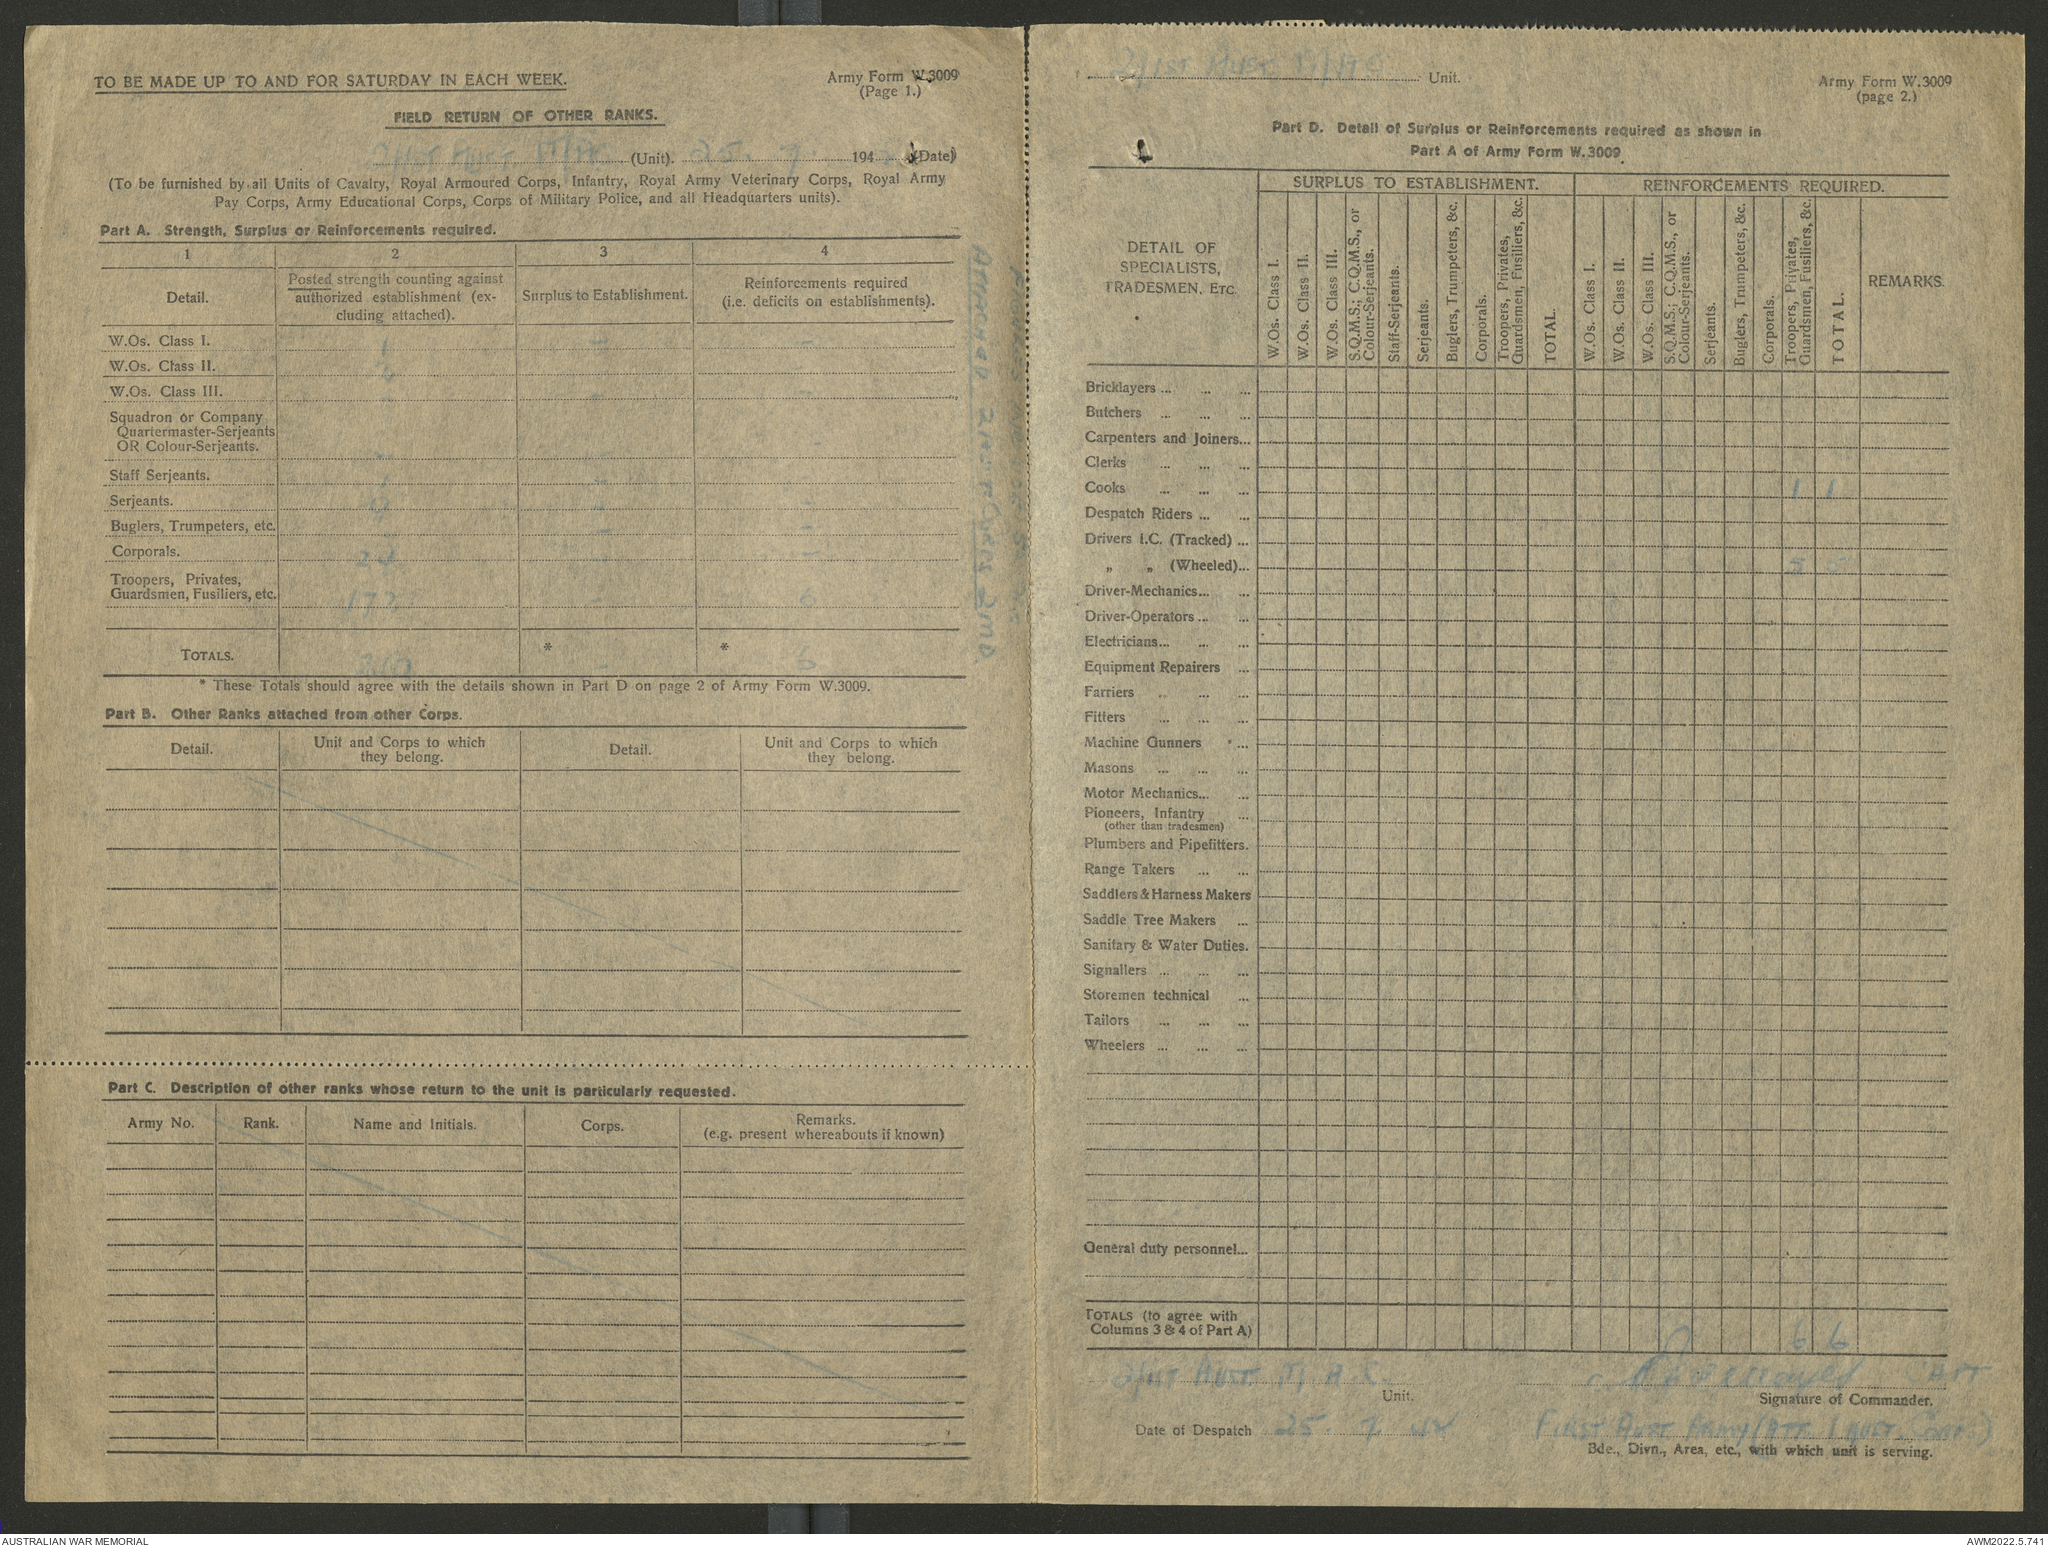 TO BE MADE UP TO AND FOR SATURDAY IN EACH WEEK.
Army Form W.3009
(Page 1.)
FIELD RETURN OF OTHER RANKS.
(Unit). 25. 7. 194 (Date)
(To be furnished by all Units of Cavalry, Royal Armoured Corps, Infantry, Royal Army Veterinary Corps, Royal Army
Pay Corps, Army Educational Corps, Corps of Military Police, and all Headquarters units).
Part A. Strength, Surplus or Reinforcements required.
1 2 3 4
Detail.
Posted strength counting against
authorized establishment (ex-
cluding attached).
Surplus to Establishment.
Reinforcements required
(i.e. deficits on establishments).
W.Os. Class I. 1 - -
W.Os. Class II.
W.Os. Class III. - - -
Squadron or Company
Quartermaster-Serjeants
OR Colour-Serjeants.
Staff Serjeants.
Serjeants.
Buglers, Trumpeters, etc.
Corporals.
Troopers, Privates,
Guardsmen, Fusiliers, etc. 172 - 6
TOTALS. * - * 6
* These Totals should agree with the details shown in Part D on page 2 of Army Form W.3009.
Part B. Other Ranks attached from other Corps.
Detail.
Unit and Corps to which
they belong.
Detail.
Unit and Corps to which
they belong.
Part C. Description of other ranks whose return to the unit is particularly requested.
Army No.
Rank.
Name and Initials.
Corps.
Remarks.
(e.g. present whereabouts if known)
2/1st Aust M/AC Unit.
Army Form W.3009
(page 2.)
Part D. Detail of Surplus or Reinforcements required as shown in
Part A of Army Form W.3009
DETAIL OF
SPECIALISTS,
TRADESMEN, ETC.
SURPLUS TO ESTABLISHMENT.
W.Os. Class I.
W.Os. Class II.
W.Os. Class III.
S.Q.M.S.; C.Q.M.S., or
Colour-Serjeants.
Staff-Serjeants.
Serjeants.
Buglers, Trumpeters, &c.
Corporals.
Troopers, Privates,
Guardsmen, Fusiliers, &c.
TOTAL.
REINFORCEMENTS REQUIRED.
W.Os. Class I.
W.Os. Class II.
W.Os. Class III.
S.Q.M.S.; C.Q.M.S., or
Colour-Serjeants.
Serjeants.
Buglers, Trumpeters, &c.
Corporals.
Troopers, Privates,
Guardsmen, Fusiliers, &c.
TOTAL.
REMARKS.
Bricklayers ... ... ...
Butchers ... ... ...
Carpenters and Joiners...
Clerks ... ... ...
Cooks ... ... ... 1 1
Despatch Riders ... ...
Drivers I.C. (Tracked) ...
„ „ (Wheeled)... 5 5
Driver-Mechanics... ...
Driver-Operators ... ...
Electricians... ... ...
Equipment Repairers ...
Farriers ... ... ...
Fitters ... ... ...
Machine Gunners ...
Masons ... ... ...
Motor Mechanics... ...
Pioneers, Infantry ...
(other than tradesmen)
Plumbers and Pipefitters.
Range Takers ... ...
Saddlers & Harness Makers
Saddle Tree Makers ...
Sanitary & Water Duties.
Signallers ... ... ...
Storemen technical ...
Tailors ... ... ...
Wheelers ... ... ...
General duty personnel...
TOTALS (to agree with
Columns 3 & 4 of Part A) 6 6
2/1st Aust M A C. Unit.
Capt
Signature of Commander.
Date of Despatch 25. 7
First Aust Army (Att 1 Aust Corps)
Bde., Divn., Area, etc., with which unit is serving.
AUSTRALIAN WAR MEMORIAL
AWM2022.5.741